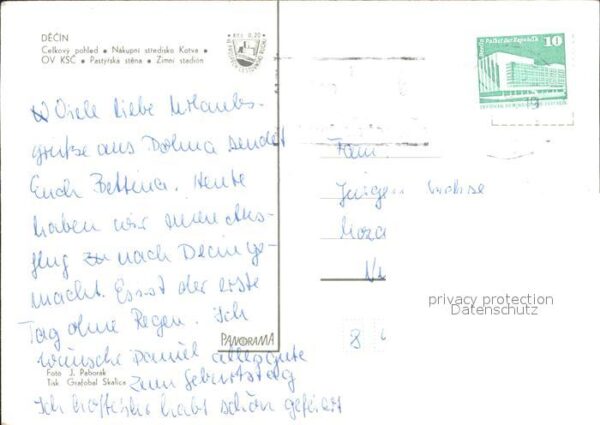 DĚČÍN
Celkový pohled • Nákupní středisko Kotva •
OV KSČ • Pastýřská stěna • Zimní stadion
Kčs 0,20
Viele liebe Urlaubs-
grüße aus Dohna sendet
Euch Bettina. Heute
haben wir einen Aus-
flug nach Decin ge-
macht. Es ist der erste
Tag ohne Regen. Ich
wünsche Daniel alles gute
zum Geburtstag
Ich hoffe ihr habt schön gefeiert
PANORAMA
Foto J. Paborák
Tisk Grafobal Skalica
Palast der Republik
10
19
Fam.
Jürgen
8
privacy protection
Datenschutz